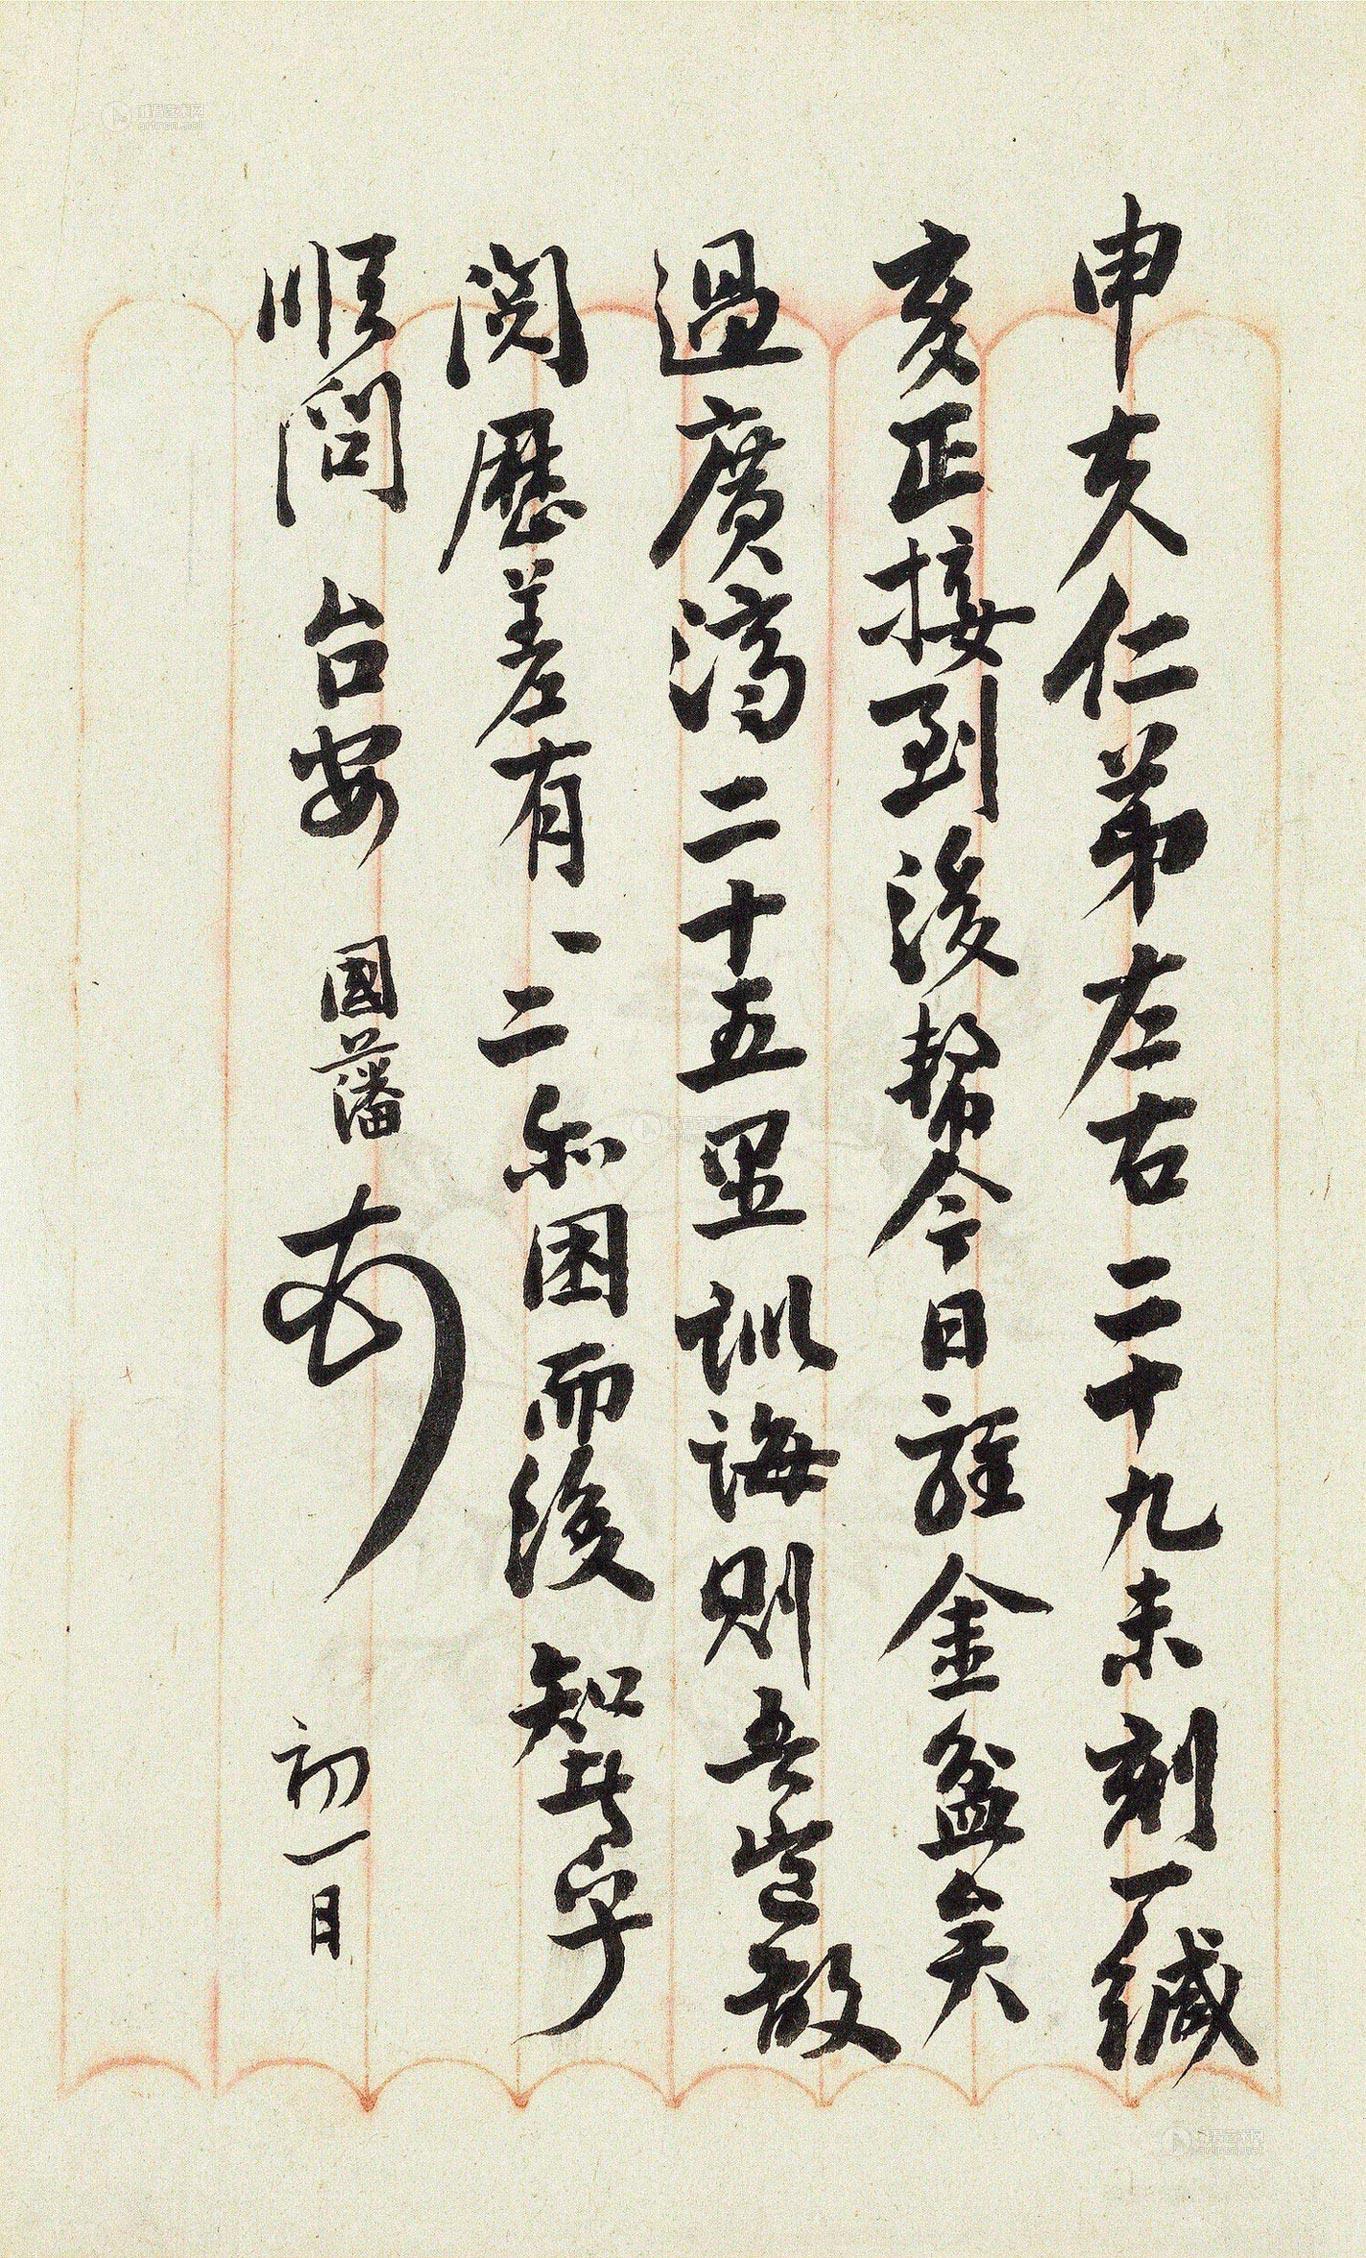 申夫仁弟左右二十九未刻一緘
亥正接到後幫今日諒金盆矣
過廣濟二十五里訓誨則吾豈敢
閱歷差有一二分困而後知者乎
順問 台安 國藩 初一日